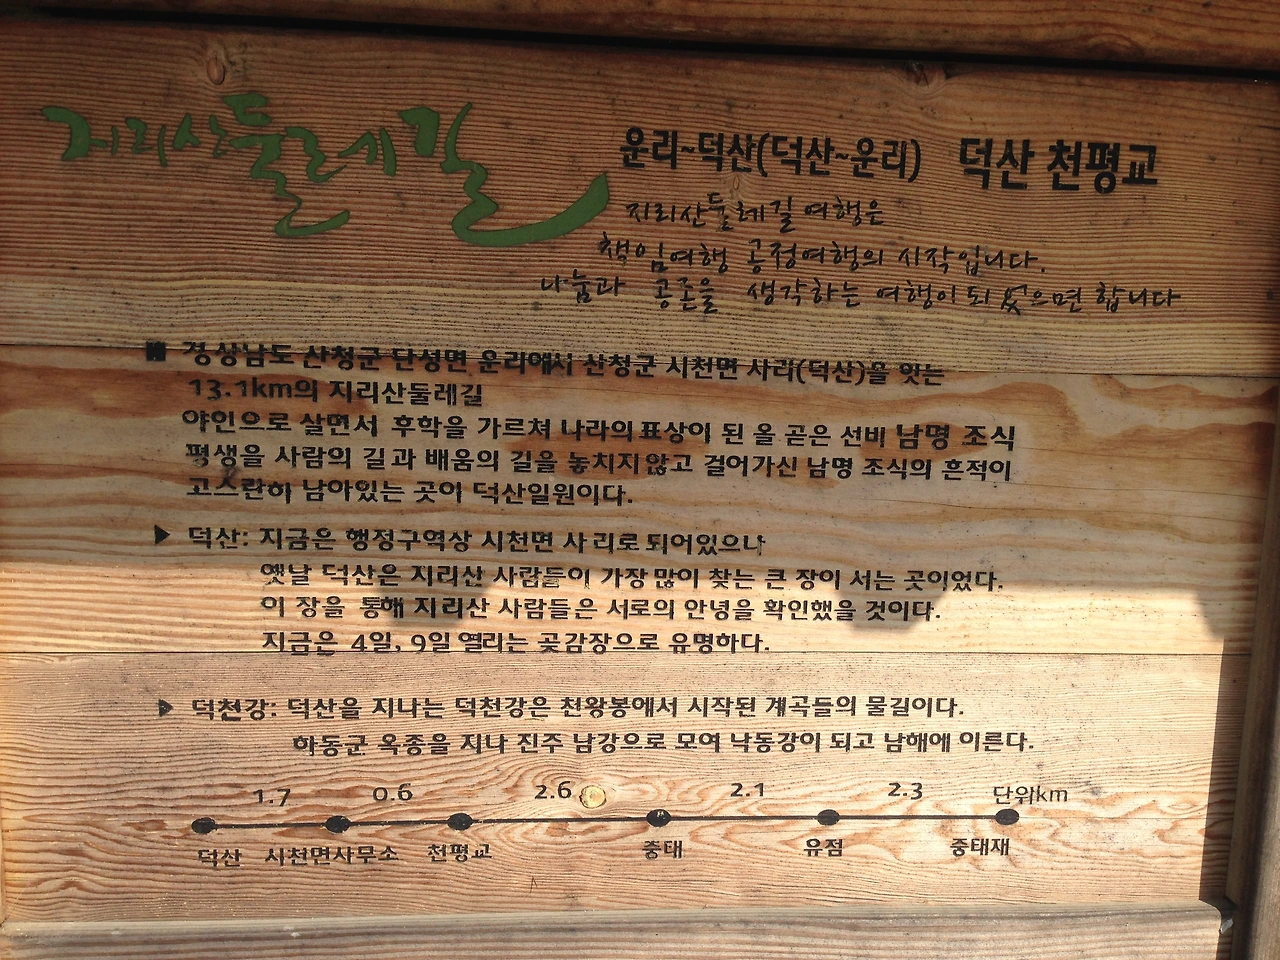 지리산둘레길
운리~덕산(덕산~운리) 덕산 천평교
지리산둘레길 여행은
책임여행 공정여행의 시작입니다.
나눔과 공존을 생각하는 여행이 되었으면 합니다
■ 경상남도 산청군 단성면 운리에서 산청군 시천면 사리(덕산)을 잇는
13.1km의 지리산둘레길
야인으로 살면서 후학을 가르쳐 나라의 표상이 된 올 곧은 선비 남명 조식
평생을 사람의 길과 배움의 길을 놓치지않고 걸어가신 남명 조식의 흔적이
고스란히 남아있는 곳이 덕산일원이다.
▶ 덕산: 지금은 행정구역상 시천면 사리로 되어있으나
옛날 덕산은 지리산 사람들이 가장 많이 찾는 큰 장이 서는 곳이었다.
이 장을 통해 지리산 사람들은 서로의 안녕을 확인했을 것이다.
지금은 4일, 9일 열리는 곶감장으로 유명하다.
▶ 덕천강: 덕산을 지나는 덕천강은 천왕봉에서 시작된 계곡들의 물길이다.
하동군 옥종을 지나 진주 남강으로 모여 낙동강이 되고 남해에 이른다.
1.7 0.6 2.6 2.1 2.3 단위km
덕산 시천면사무소 천평교 중태 유점 중태재